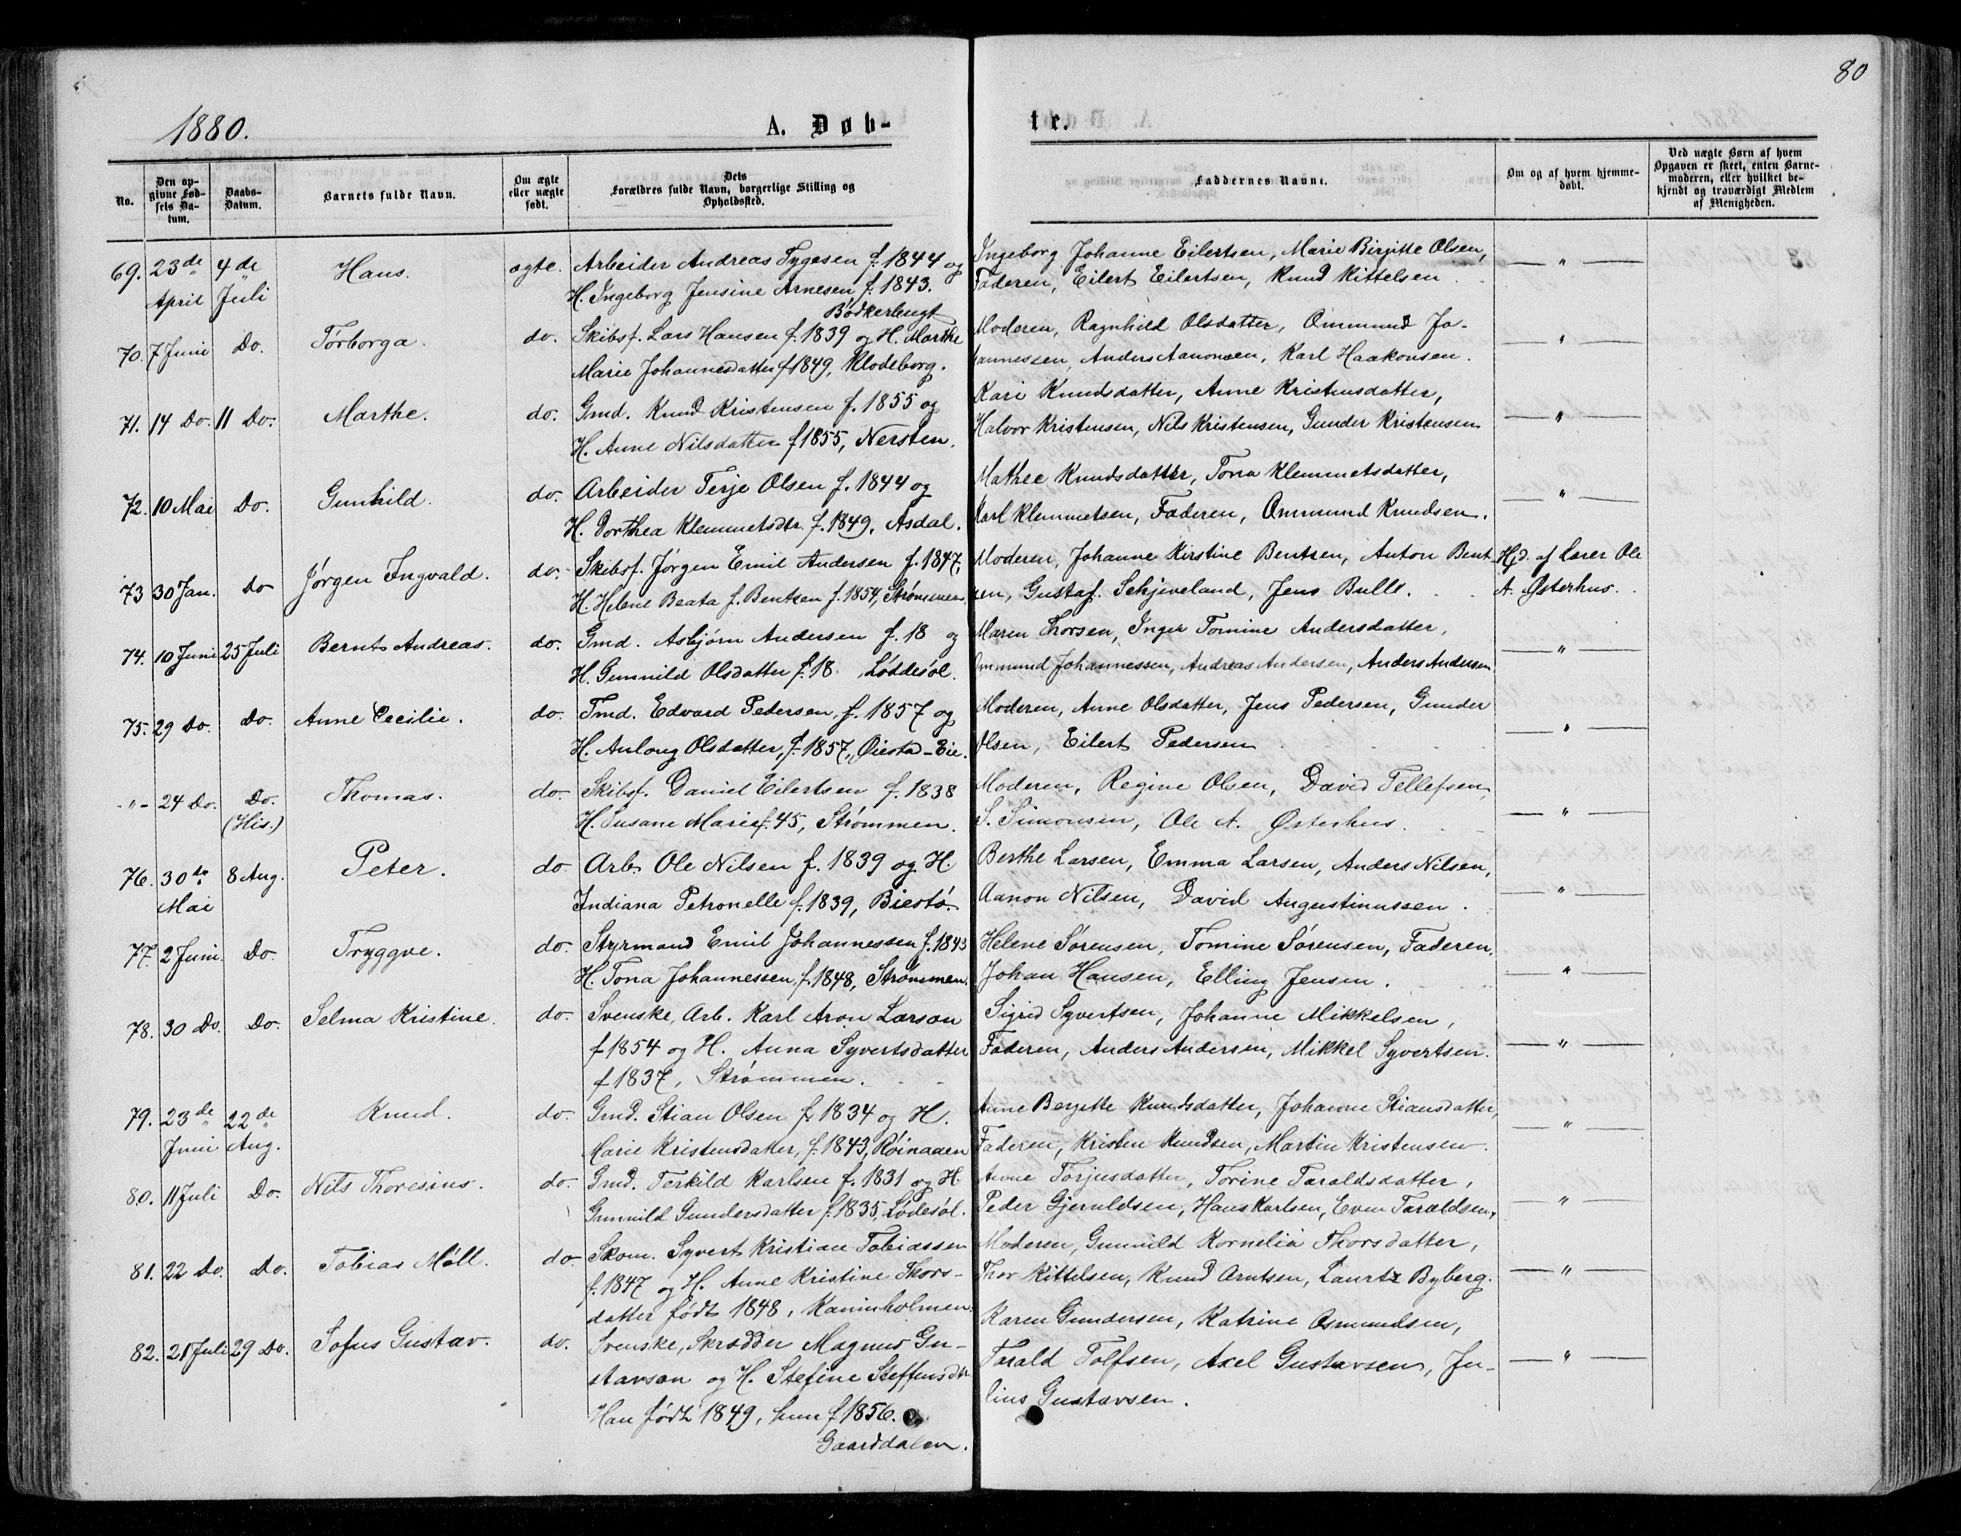 80
1880.
A. Døb-
te.
No.
Den op-
givne Fød-
sels Da-
tum.
Daabs-
Datum.
Barnets fulde Navn.
Om ægte
eller uægte
født.
Dets
Forældres fulde Navn, borgerlige Stilling og
Opholdssted.
Faddernes Navne.
Om og af hvem hjemme-
døbt.
Ved uægte Børn af hvem
Opgaven er skeet, enten Barne-
moderen, eller hvilket be-
kjendt og troværdigt Medlem
af Menigheden.
69. 23de 4de Hans. ægte. Arbeider Andreas Tygesen f. 1844 og Ingeborg Johanne Eilertsen, Marie Birgitte Olsen, — " —
April Juli H. Ingeborg Jensine Arnesen f. 1843. Faderen, Eilert Eilertsen, Knud Kittelsen.
Bødkerbugt
70. 7 Juni Do. Torborga. do. Skibsf. Lars Hansen f. 1839 og H. Marthe Moderen, Ragnhild Olsdatter, Ommund Jo- — " —
Marie Johannesdatter f 1849, Klodeborg. hannessen, Anders Aanonsen, Karl Haakonsen.
71. 14 Do. 11 Do. Marthe. do. Gmd. Knud Kristensen f. 1855 og Kari Knudsdatter, Anne Kristensdatter, — " —
H. Anne Nilsdatter f 1855, Nersten. Halvor Kristensen, Nils Kristensen, Gunder Kristensen
72. 10 Mai Do. Gunhild. do. Arbeider Terje Olsen f. 1844 og Mathee Knudsdatter, Tona Klemmetsdatter, — " —
H. Dorthea Klemmetsdtr. f. 1849, Asdal. Karl Klemmetsen, Faderen, Ommund Knudsen.
73 30 Jan. Do Jørgen Ingvald. do. Skibsf. Jørgen Emil Andersen f. 1847, Moderen, Johanne Kirstine Bentsen, Anton Bent Hjd. af Lærer Ole
H. Helene Beata f. Bentsen f. 1854, Strømmen sen, Gustaf. Schjeveland, Jens Bulle. A. Østerhus.
74. 10 Juni 25 Juli Bernt Andreas. do. Gmd. Asbjørn Andersen f. 18 og Maren Thorsen, Inger Tomine Andersdatter, — " —
H. Gunnild Olsdatter f. 18 , Løddesøl. Ommund Johannessen, Andreas Andersen, Anders Andersen
75. 29 Do. Do. Anne Cecilie. do. Tmd. Edvard Pedersen, f. 1857 og Moderen, Anne Olsdatter, Jens Pedersen, Gunder — " —
H. Anlong Olsdatter, f. 1857, Øiestad-Eie. Olsen, Eilert Pedersen
-"- 24 Do. Do. Thomas. do. Skibsf. Daniel Eilertsen f. 1838 Moderen, Regine Olsen, David Tellefsen, — " —
(His.) H. Susane Marie f. 45, Strømmen. S. Simonsen, Ole A. Østerhus.
76. 30te 8 Aug. Peter. do Arb. Ole Nilsen f. 1839 og H. Berthe Larsen, Emma Larsen, Anders Nilsen, — " —
Mai Indiana Petronelle f. 1839, Biestø. Aanon Nilsen, David Augustinussen.
77. 2 Juni. Do. Tryggve. do. Styrmand Emil Johannessen f. 1843 Helene Sørensen, Tomine Sørensen, Faderen, — " —
H. Tona Johannessen, f. 1848, Strømmen. Johan Hansen, Elling Jensen.
78. 30 Do. Do. Selma Kristine. do. Svenske, Arb. Karl Aron Larson Sigrid Syvertsen, Johanne Mikkelsen, — " —
f 1854 og H. Anna Syvertsdatter Faderen, Anders Andersen, Mikkel Syvertsen.
f 1837, Strømmen.
79. 23de 22de Knud. do. Gmd. Stian Olsen f. 1834 og H. Anne Bergitte Knudsdatter, Johanne Stiansdatter, — " —
Juni Aug. Marie Kristensdatter, f. 1843, Røinaaen Faderen, Kristen Knudsen, Martin Kristensen.
80. 11 Juli Do. Nils Thoresius. do. Gmd. Terkild Karlsen f. 1831 og H. Anne Torjusdatter, Torine Taraldsdatter, — " —
Gunnild Gundersdatter f. 1835, Lødesøl. Peder Gjeruldsen, Hans Karlsen, Even Taraldsen,
81. 22 Do. Do. Tobias Møll. do. Skom. Syvert Kristian Tobiassen Moderen, Gunnild Kornelia Thorsdatter, — " —
f. 1847 og H. Anne Kristine Thors- Thor Kittelsen, Knud Arntsen, Lauritz Byberg.
datter født 1848, Kaninholmen.
82. 21 Juli 29 Do. Sofus Gustav. do. Svenske, Skrædder Magnus Gu- Karen Gundersen, Katrine Osmundsen, — " —
stavson og H. Stefine Steffensdtr. Tarald Tolfsen, Axel Gustavsen, Ju-
Han født 1849, hun f 1856. lius Gustavsen.
Gaarddalen.